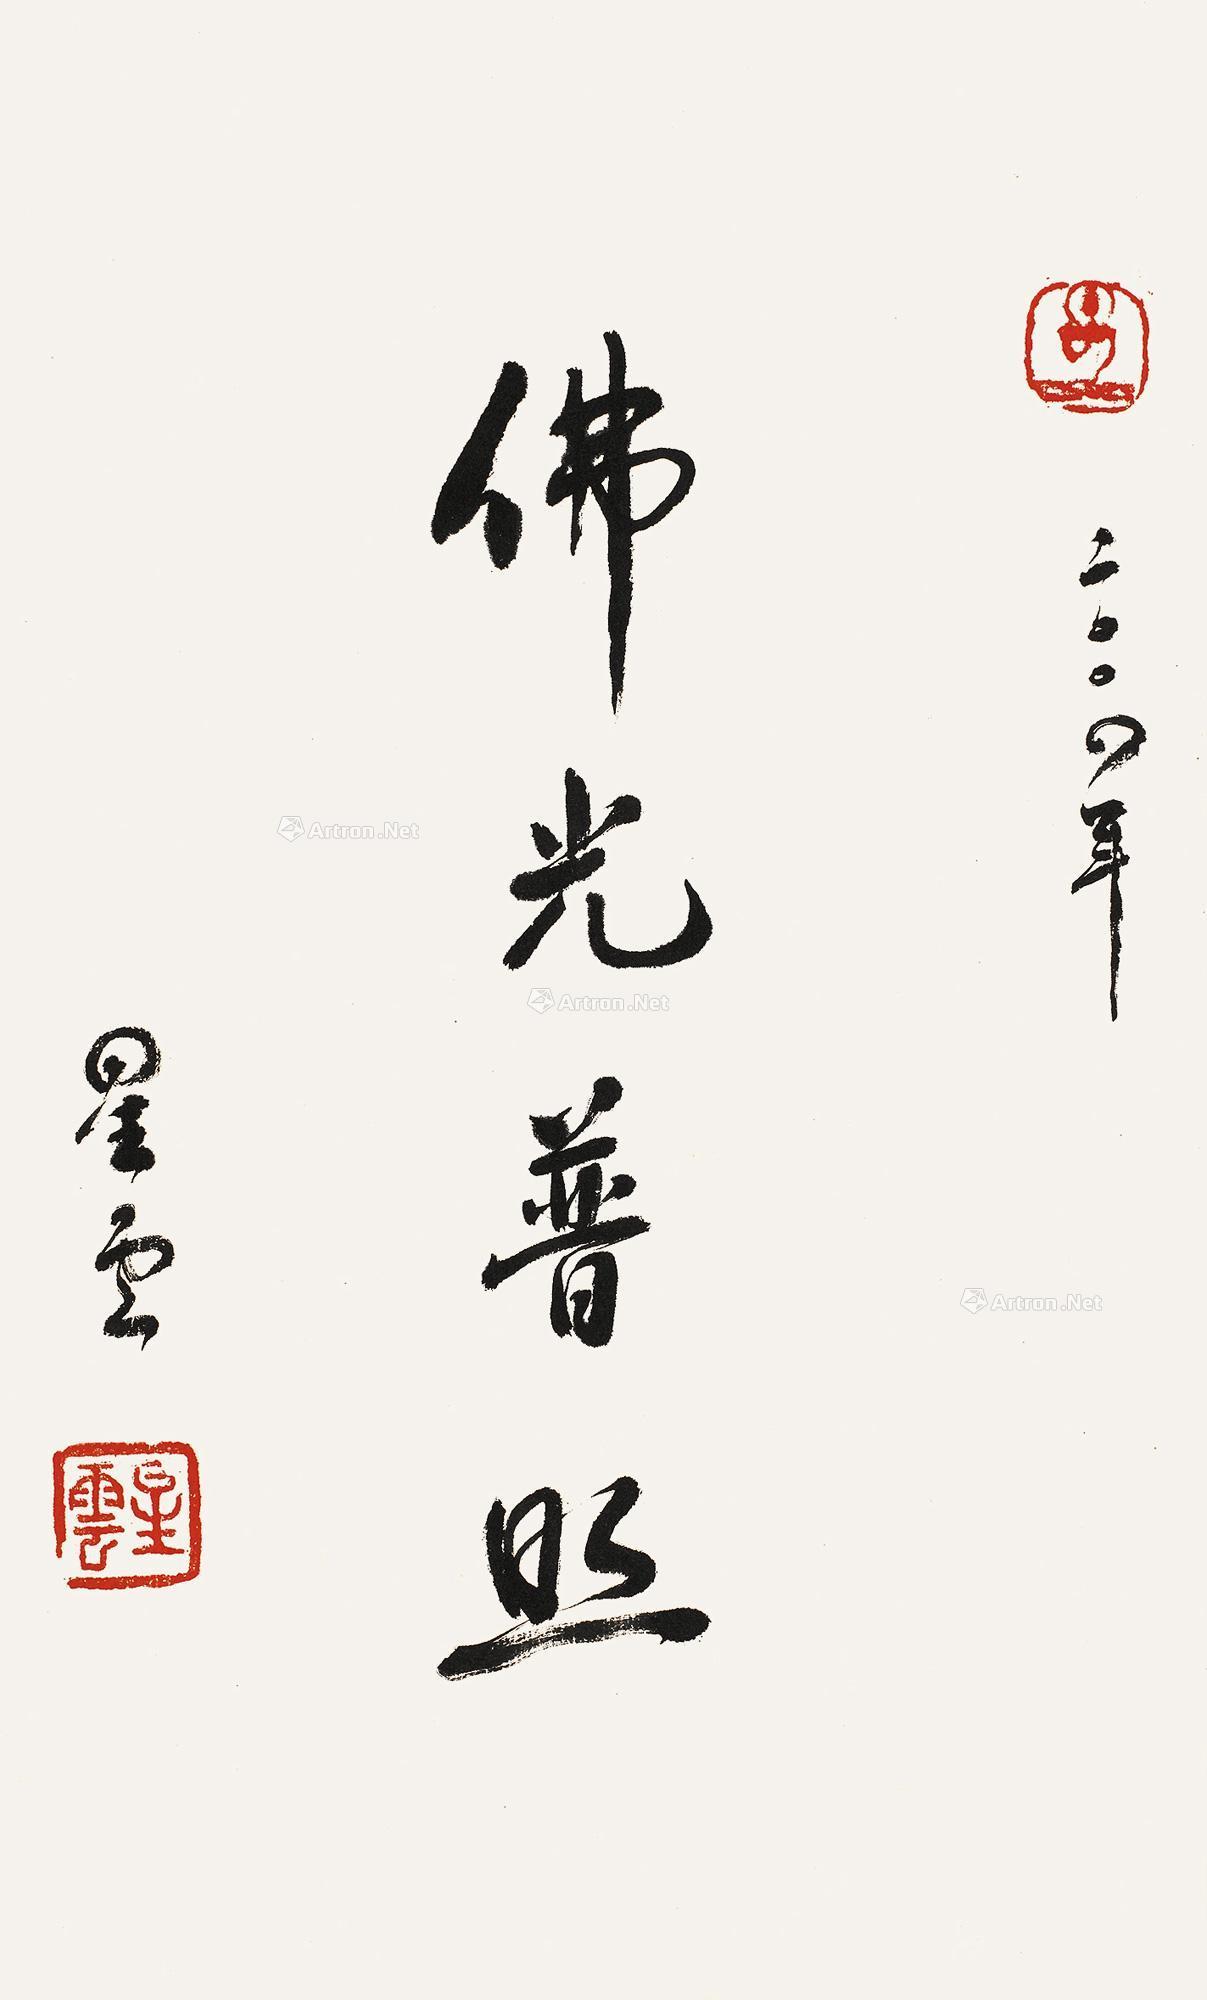 二〇〇四年
佛光普照
星雲
星雲
Artron.Net
Artron.Net
Artron.Net